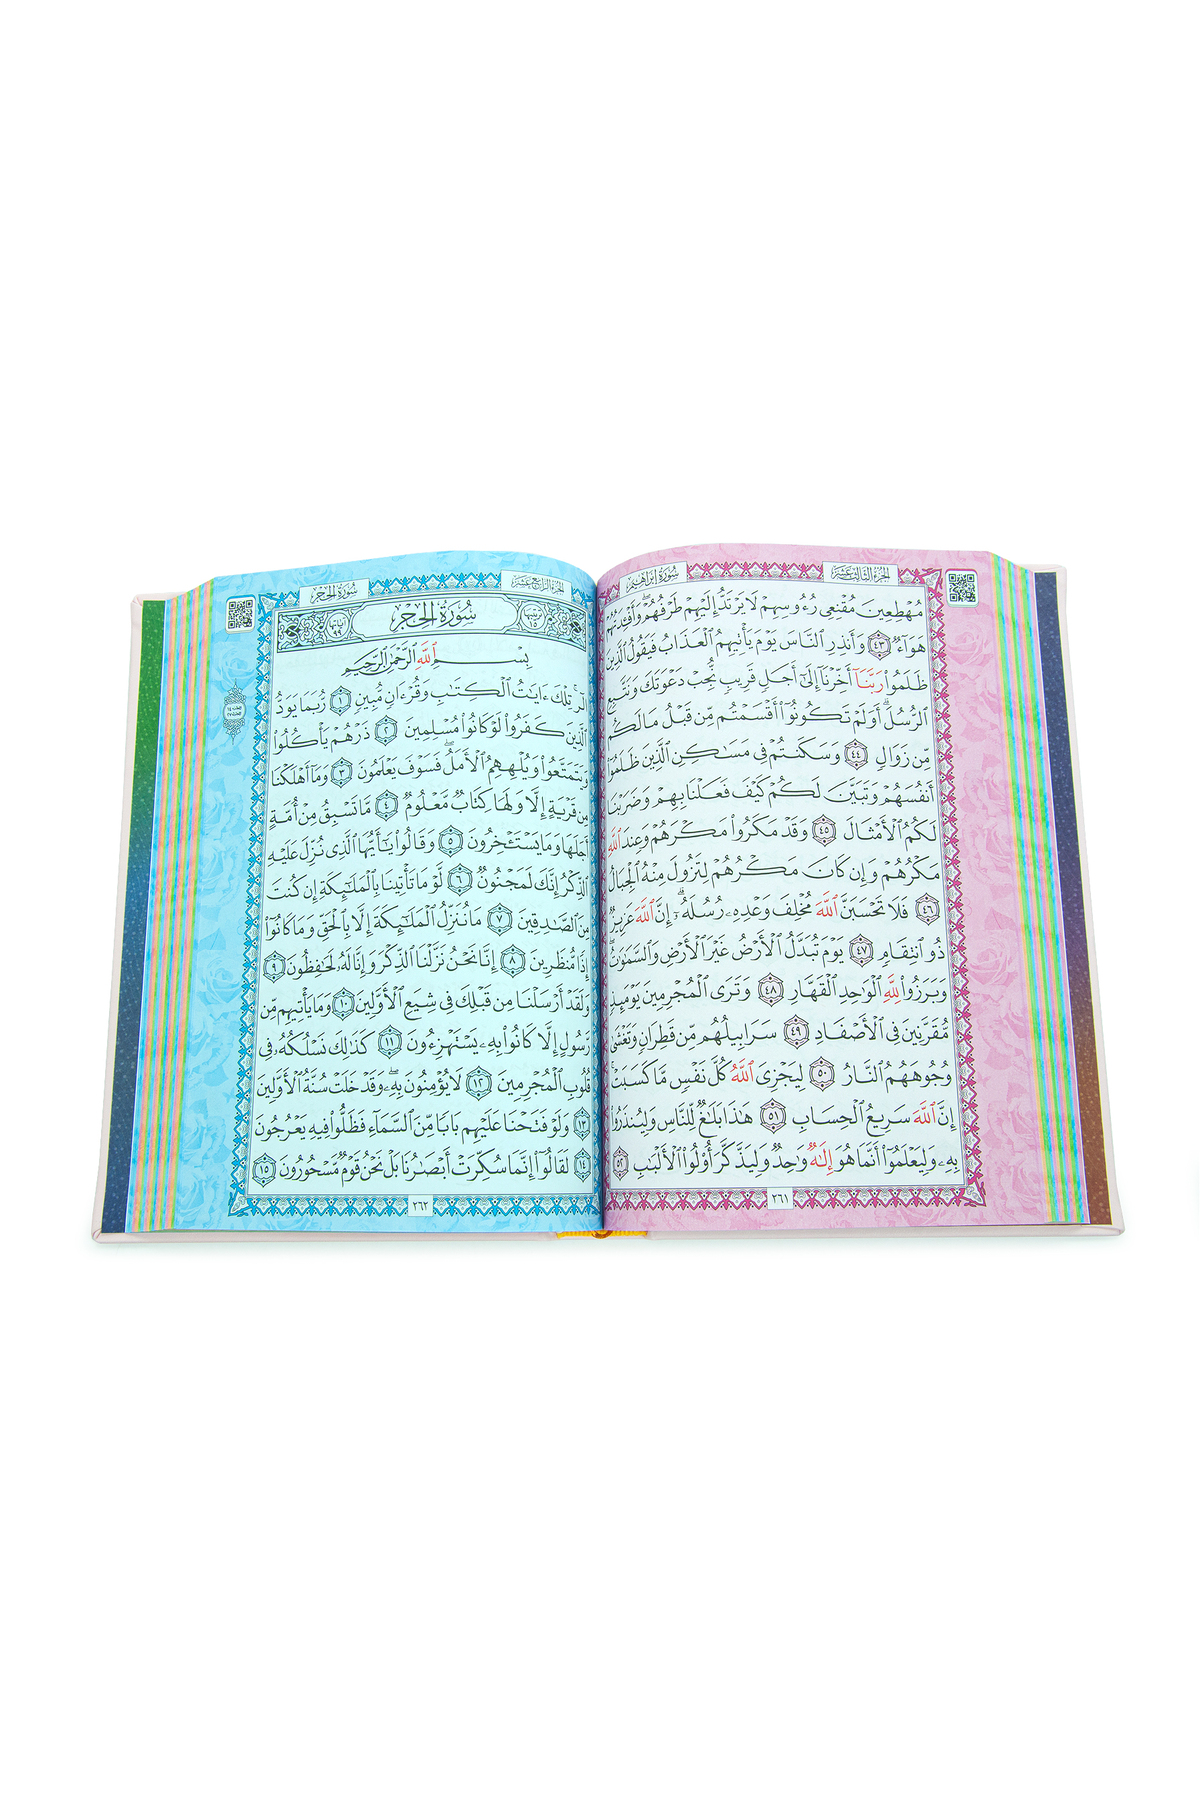 سُورَةُ إِبْرَاهِيمَ
الجُزْءُ الثَّالِثُ عَشَرَ
مُهْطِعِينَ مُقْنِعِي رُءُوسِهِمْ لَا يَرْتَدُّ إِلَيْهِمْ طَرْفُهُمْ ۖ وَأَفْـِٔدَتُهُمْ
هَوَآءٌ ٤٣ وَأَنذِرِ ٱلنَّاسَ يَوْمَ يَأْتِيهِمُ ٱلْعَذَابُ فَيَقُولُ ٱلَّذِينَ
ظَلَمُوا۟ رَبَّنَآ أَخِّرْنَآ إِلَىٰٓ أَجَلٍ قَرِيبٍ نُّجِبْ دَعْوَتَكَ وَنَتَّبِعِ
ٱلرُّسُلَ ۗ أَوَلَمْ تَكُونُوٓا۟ أَقْسَمْتُم مِّن قَبْلُ مَا لَكُم
مِّن زَوَالٍ ٤٤ وَسَكَنتُمْ فِى مَسَـٰكِنِ ٱلَّذِينَ ظَلَمُوٓا۟
أَنفُسَهُمْ وَتَبَيَّنَ لَكُمْ كَيْفَ فَعَلْنَا بِهِمْ وَضَرَبْنَا
لَكُمُ ٱلْأَمْثَالَ ٤٥ وَقَدْ مَكَرُوا۟ مَكْرَهُمْ وَعِندَ ٱللَّهِ
مَكْرُهُمْ وَإِن كَانَ مَكْرُهُمْ لِتَزُولَ مِنْهُ ٱلْجِبَالُ
٤٦ فَلَا تَحْسَبَنَّ ٱللَّهَ مُخْلِفَ وَعْدِهِۦ رُسُلَهُۥٓ ۗ إِنَّ ٱللَّهَ عَزِيزٌ
ذُو ٱنتِقَامٍ ٤٧ يَوْمَ تُبَدَّلُ ٱلْأَرْضُ غَيْرَ ٱلْأَرْضِ وَٱلسَّمَـٰوَٰتُ ۖ
وَبَرَزُوا۟ لِلَّهِ ٱلْوَٰحِدِ ٱلْقَهَّارِ ٤٨ وَتَرَى ٱلْمُجْرِمِينَ يَوْمَئِذٍ
مُّقَرَّنِينَ فِى ٱلْأَصْفَادِ ٤٩ سَرَابِيلُهُم مِّن قَطِرَانٍ وَتَغْشَىٰ
وُجُوهَهُمُ ٱلنَّارُ ٥٠ لِيَجْزِىَ ٱللَّهُ كُلَّ نَفْسٍ مَّا كَسَبَتْ ۚ
إِنَّ ٱللَّهَ سَرِيعُ ٱلْحِسَابِ ٥١ هَـٰذَا بَلَـٰغٌ لِّلنَّاسِ وَلِيُنذَرُوا۟
بِهِۦ وَلِيَعْلَمُوٓا۟ أَنَّمَا هُوَ إِلَـٰهٌ وَٰحِدٌ وَلِيَذَّكَّرَ أُو۟لُوا۟ ٱلْأَلْبَـٰبِ ٥٢
٢٦١
الجُزْءُ الرَّابِعَ عَشَرَ
سُورَةُ الحِجْرِ
سُورَةُ الحِجْرِ
آيَاتُهَا ٩٩
بِسْمِ ٱللَّهِ ٱلرَّحْمَـٰنِ ٱلرَّحِيمِ
الٓر ۚ تِلْكَ ءَايَـٰتُ ٱلْكِتَـٰبِ وَقُرْءَانٍ مُّبِينٍ ١ رُّبَمَا يَوَدُّ
ٱلَّذِينَ كَفَرُوا۟ لَوْ كَانُوا۟ مُسْلِمِينَ ٢ ذَرْهُمْ يَأْكُلُوا۟
وَيَتَمَتَّعُوا۟ وَيُلْهِهِمُ ٱلْأَمَلُ ۖ فَسَوْفَ يَعْلَمُونَ ٣ وَمَآ أَهْلَكْنَا
مِن قَرْيَةٍ إِلَّا وَلَهَا كِتَابٌ مَّعْلُومٌ ٤ مَّا تَسْبِقُ مِنْ أُمَّةٍ
أَجَلَهَا وَمَا يَسْتَـْٔخِرُونَ ٥ وَقَالُوا۟ يَـٰٓأَيُّهَا ٱلَّذِى نُزِّلَ عَلَيْهِ
ٱلذِّكْرُ إِنَّكَ لَمَجْنُونٌ ٦ لَّوْ مَا تَأْتِينَا بِٱلْمَلَـٰٓئِكَةِ إِن كُنتَ
مِنَ ٱلصَّـٰدِقِينَ ٧ مَا نُنَزِّلُ ٱلْمَلَـٰٓئِكَةَ إِلَّا بِٱلْحَقِّ وَمَا كَانُوٓا۟
إِذًا مُّنظَرِينَ ٨ إِنَّا نَحْنُ نَزَّلْنَا ٱلذِّكْرَ وَإِنَّا لَهُۥ لَحَـٰفِظُونَ ٩
وَلَقَدْ أَرْسَلْنَا مِن قَبْلِكَ فِى شِيَعِ ٱلْأَوَّلِينَ ١٠ وَمَا يَأْتِيهِم مِّن
رَّسُولٍ إِلَّا كَانُوا۟ بِهِۦ يَسْتَهْزِءُونَ ١١ كَذَٰلِكَ نَسْلُكُهُۥ فِى
قُلُوبِ ٱلْمُجْرِمِينَ ١٢ لَا يُؤْمِنُونَ بِهِۦ ۖ وَقَدْ خَلَتْ سُنَّةُ ٱلْأَوَّلِينَ
١٣ وَلَوْ فَتَحْنَا عَلَيْهِم بَابًا مِّنَ ٱلسَّمَآءِ فَظَلُّوا۟ فِيهِ يَعْرُجُونَ
١٤ لَقَالُوٓا۟ إِنَّمَا سُكِّرَتْ أَبْصَـٰرُنَا بَلْ نَحْنُ قَوْمٌ مَّسْحُورُونَ ١٥
٢٦٢